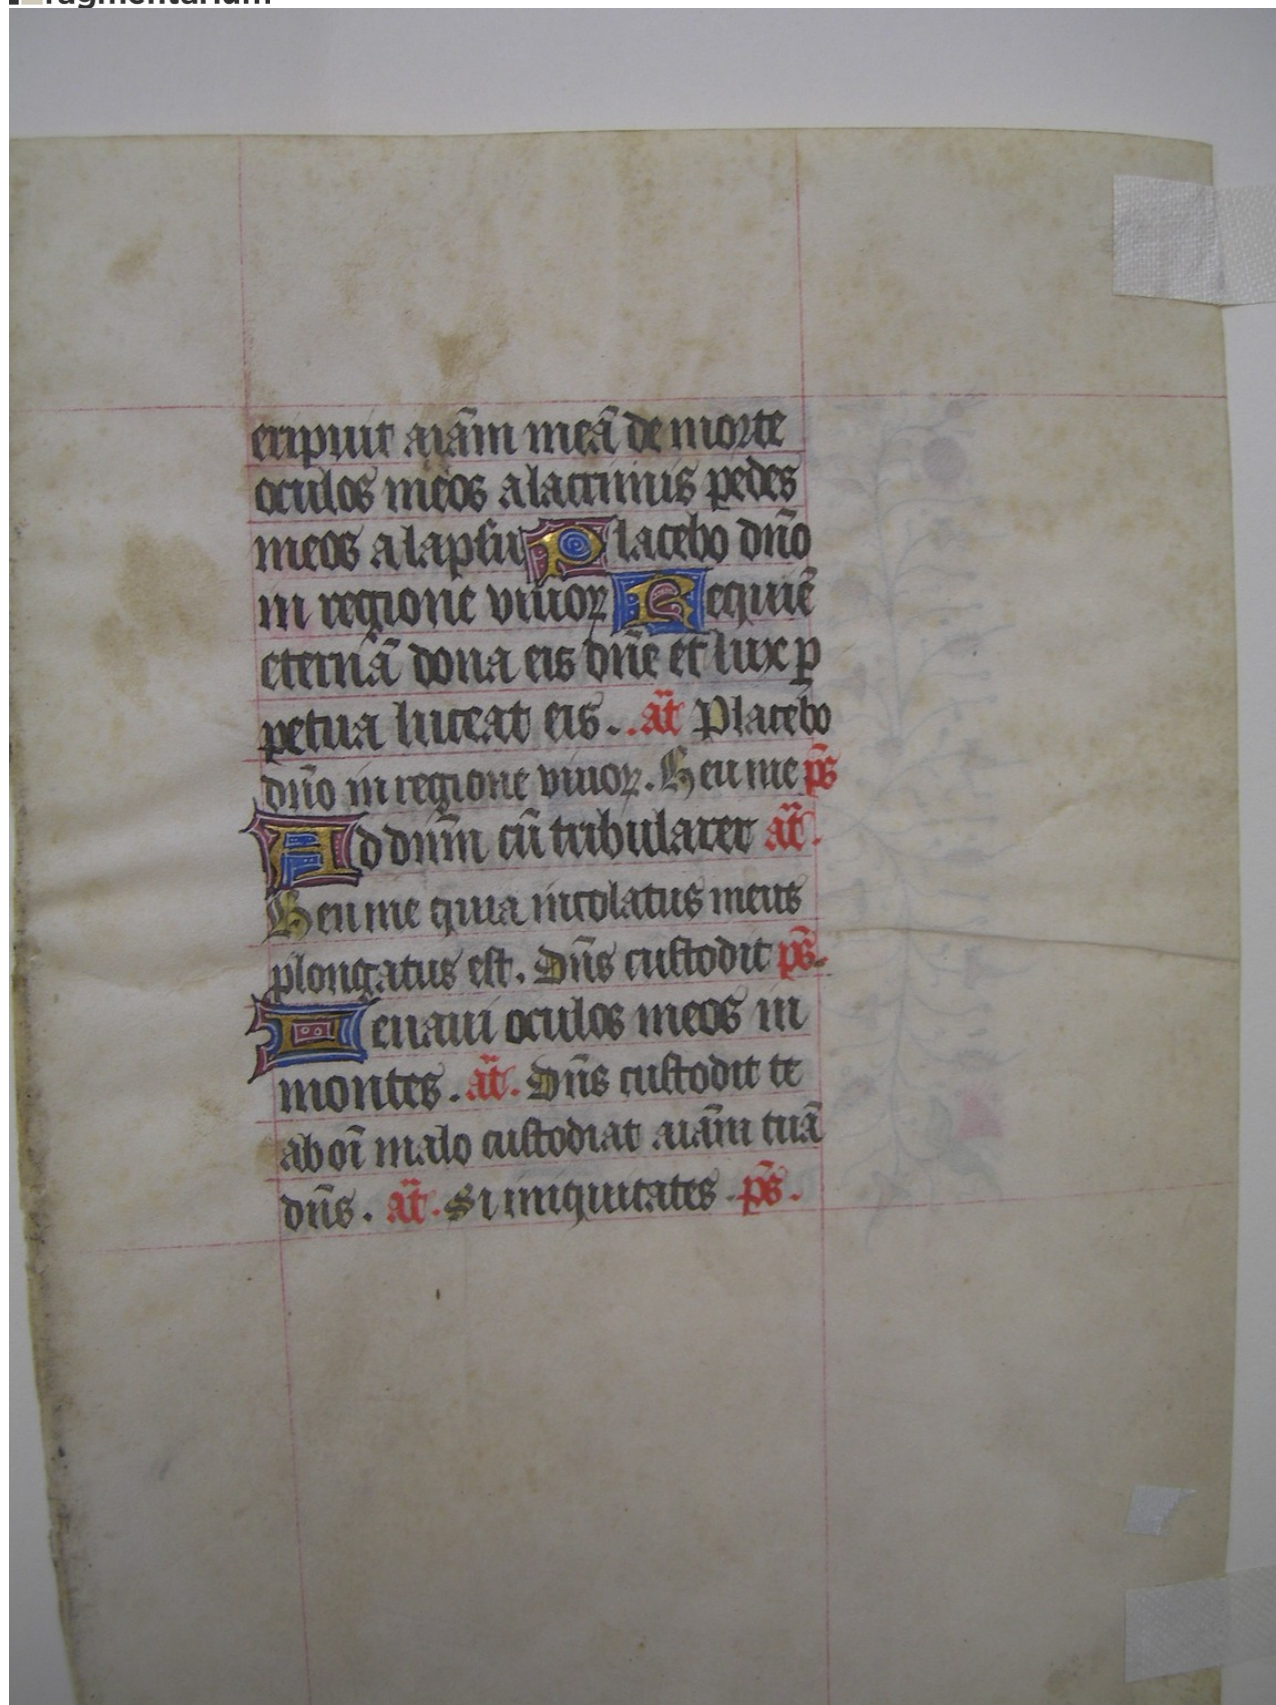 ragmentarium
eripuit aīam meā de morte
oculos meos a lacrimis pedes
meos a lapsu Placebo dn̄o
in regione viuoꝝ Requiē
eternā dona eis dn̄e et lux ꝑ
petua luceat eis.. an̄ Placebo
dn̄o in regione viuoꝝ. Heu me ps̄
Ad dn̄m cū tribularer an̄.
Heu me quia incolatus meus
ꝓlongatus est. Dn̄s custodit ps̄.
Leuaui oculos meos in
montes. an̄. Dn̄s custodit te
ab oī malo custodiat aīam tuā
dn̄s. an̄. Si iniquitates. ps̄.